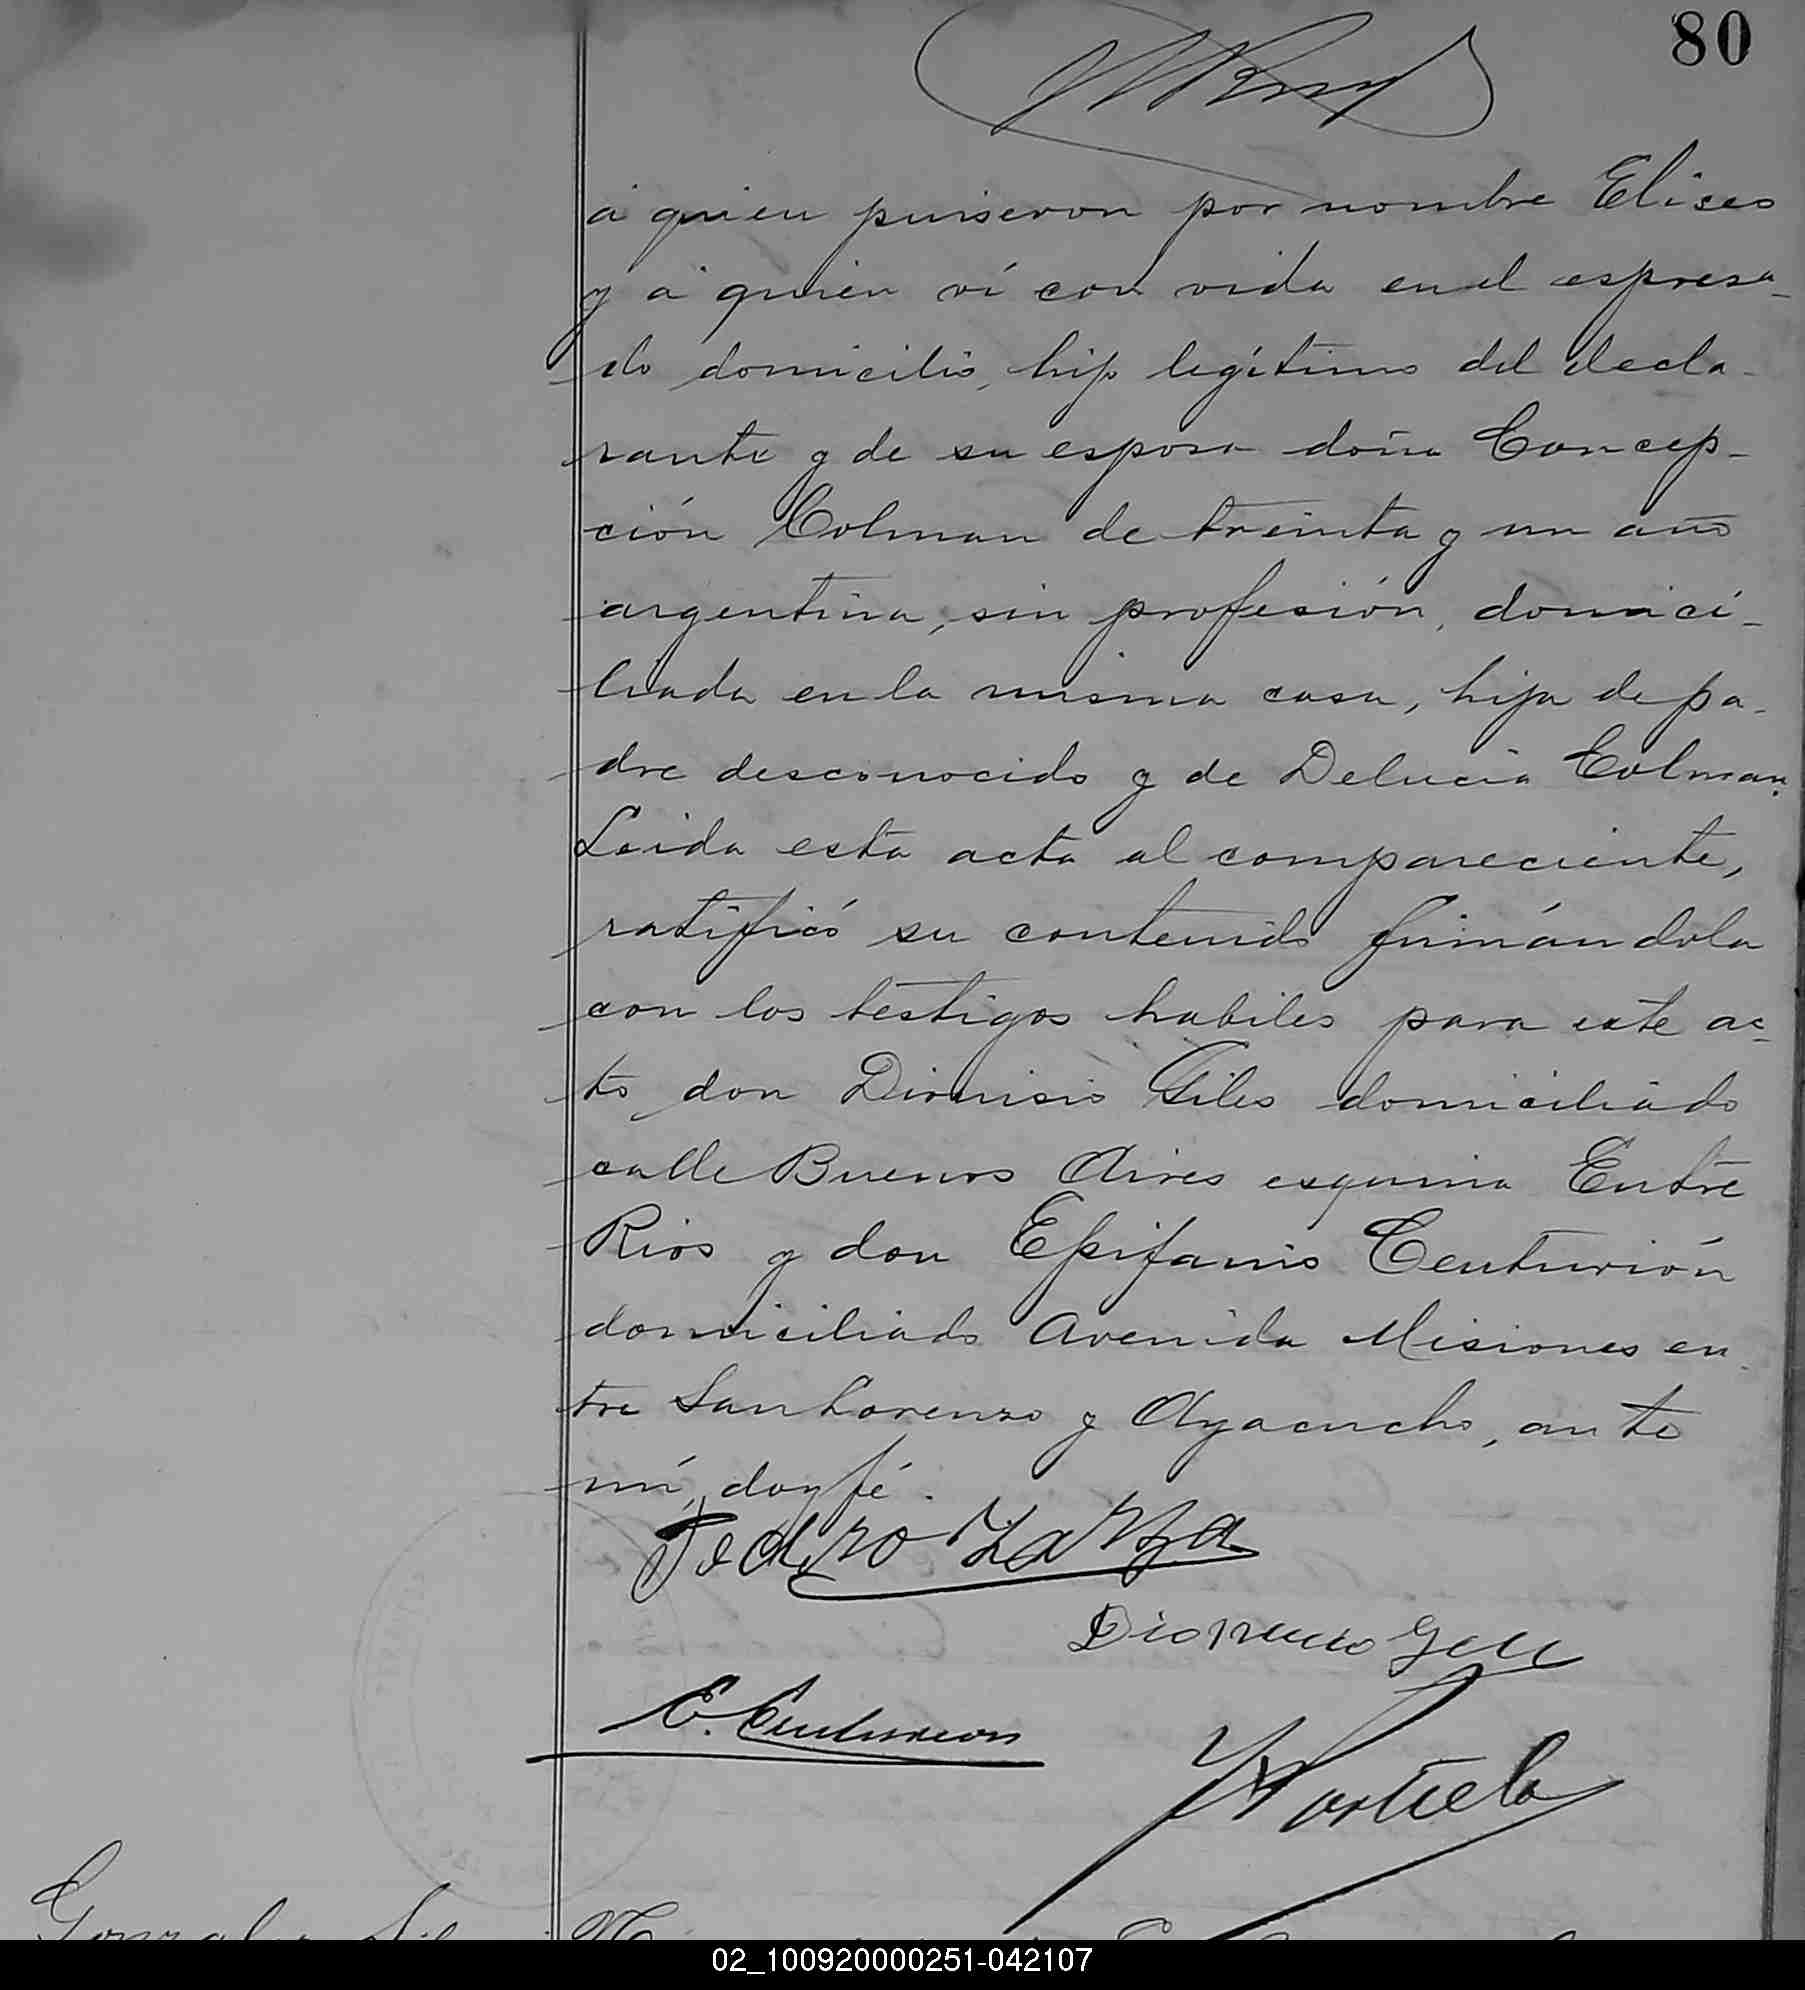 80
á quien pusieron por nombre Eliseo
y á quien ví con vida en el espresa-
do domicilio, hijo legítimo del decla-
rante y de su esposa doña Concep-
ción Colman de treinta y un año
argentina, sin profesión, domici-
liada en la misma casa, hija de pa-
dre desconocido y de Delucia Colman.
Leida esta acta al compareciente,
ratificó su contenido firmándola
con los testigos habiles para este ac-
to don Dionisio Giles domiciliado
calle Buenos Aires esquina Entre
Rios y don Epifanio Centurión
domiciliado Avenida Misiones en-
tre San Lorenzo y Ayacucho, ante
mí, doy fé.
Pedro Zarza
Dionicio
E. Centurion
Portela
02_100920000251-042107